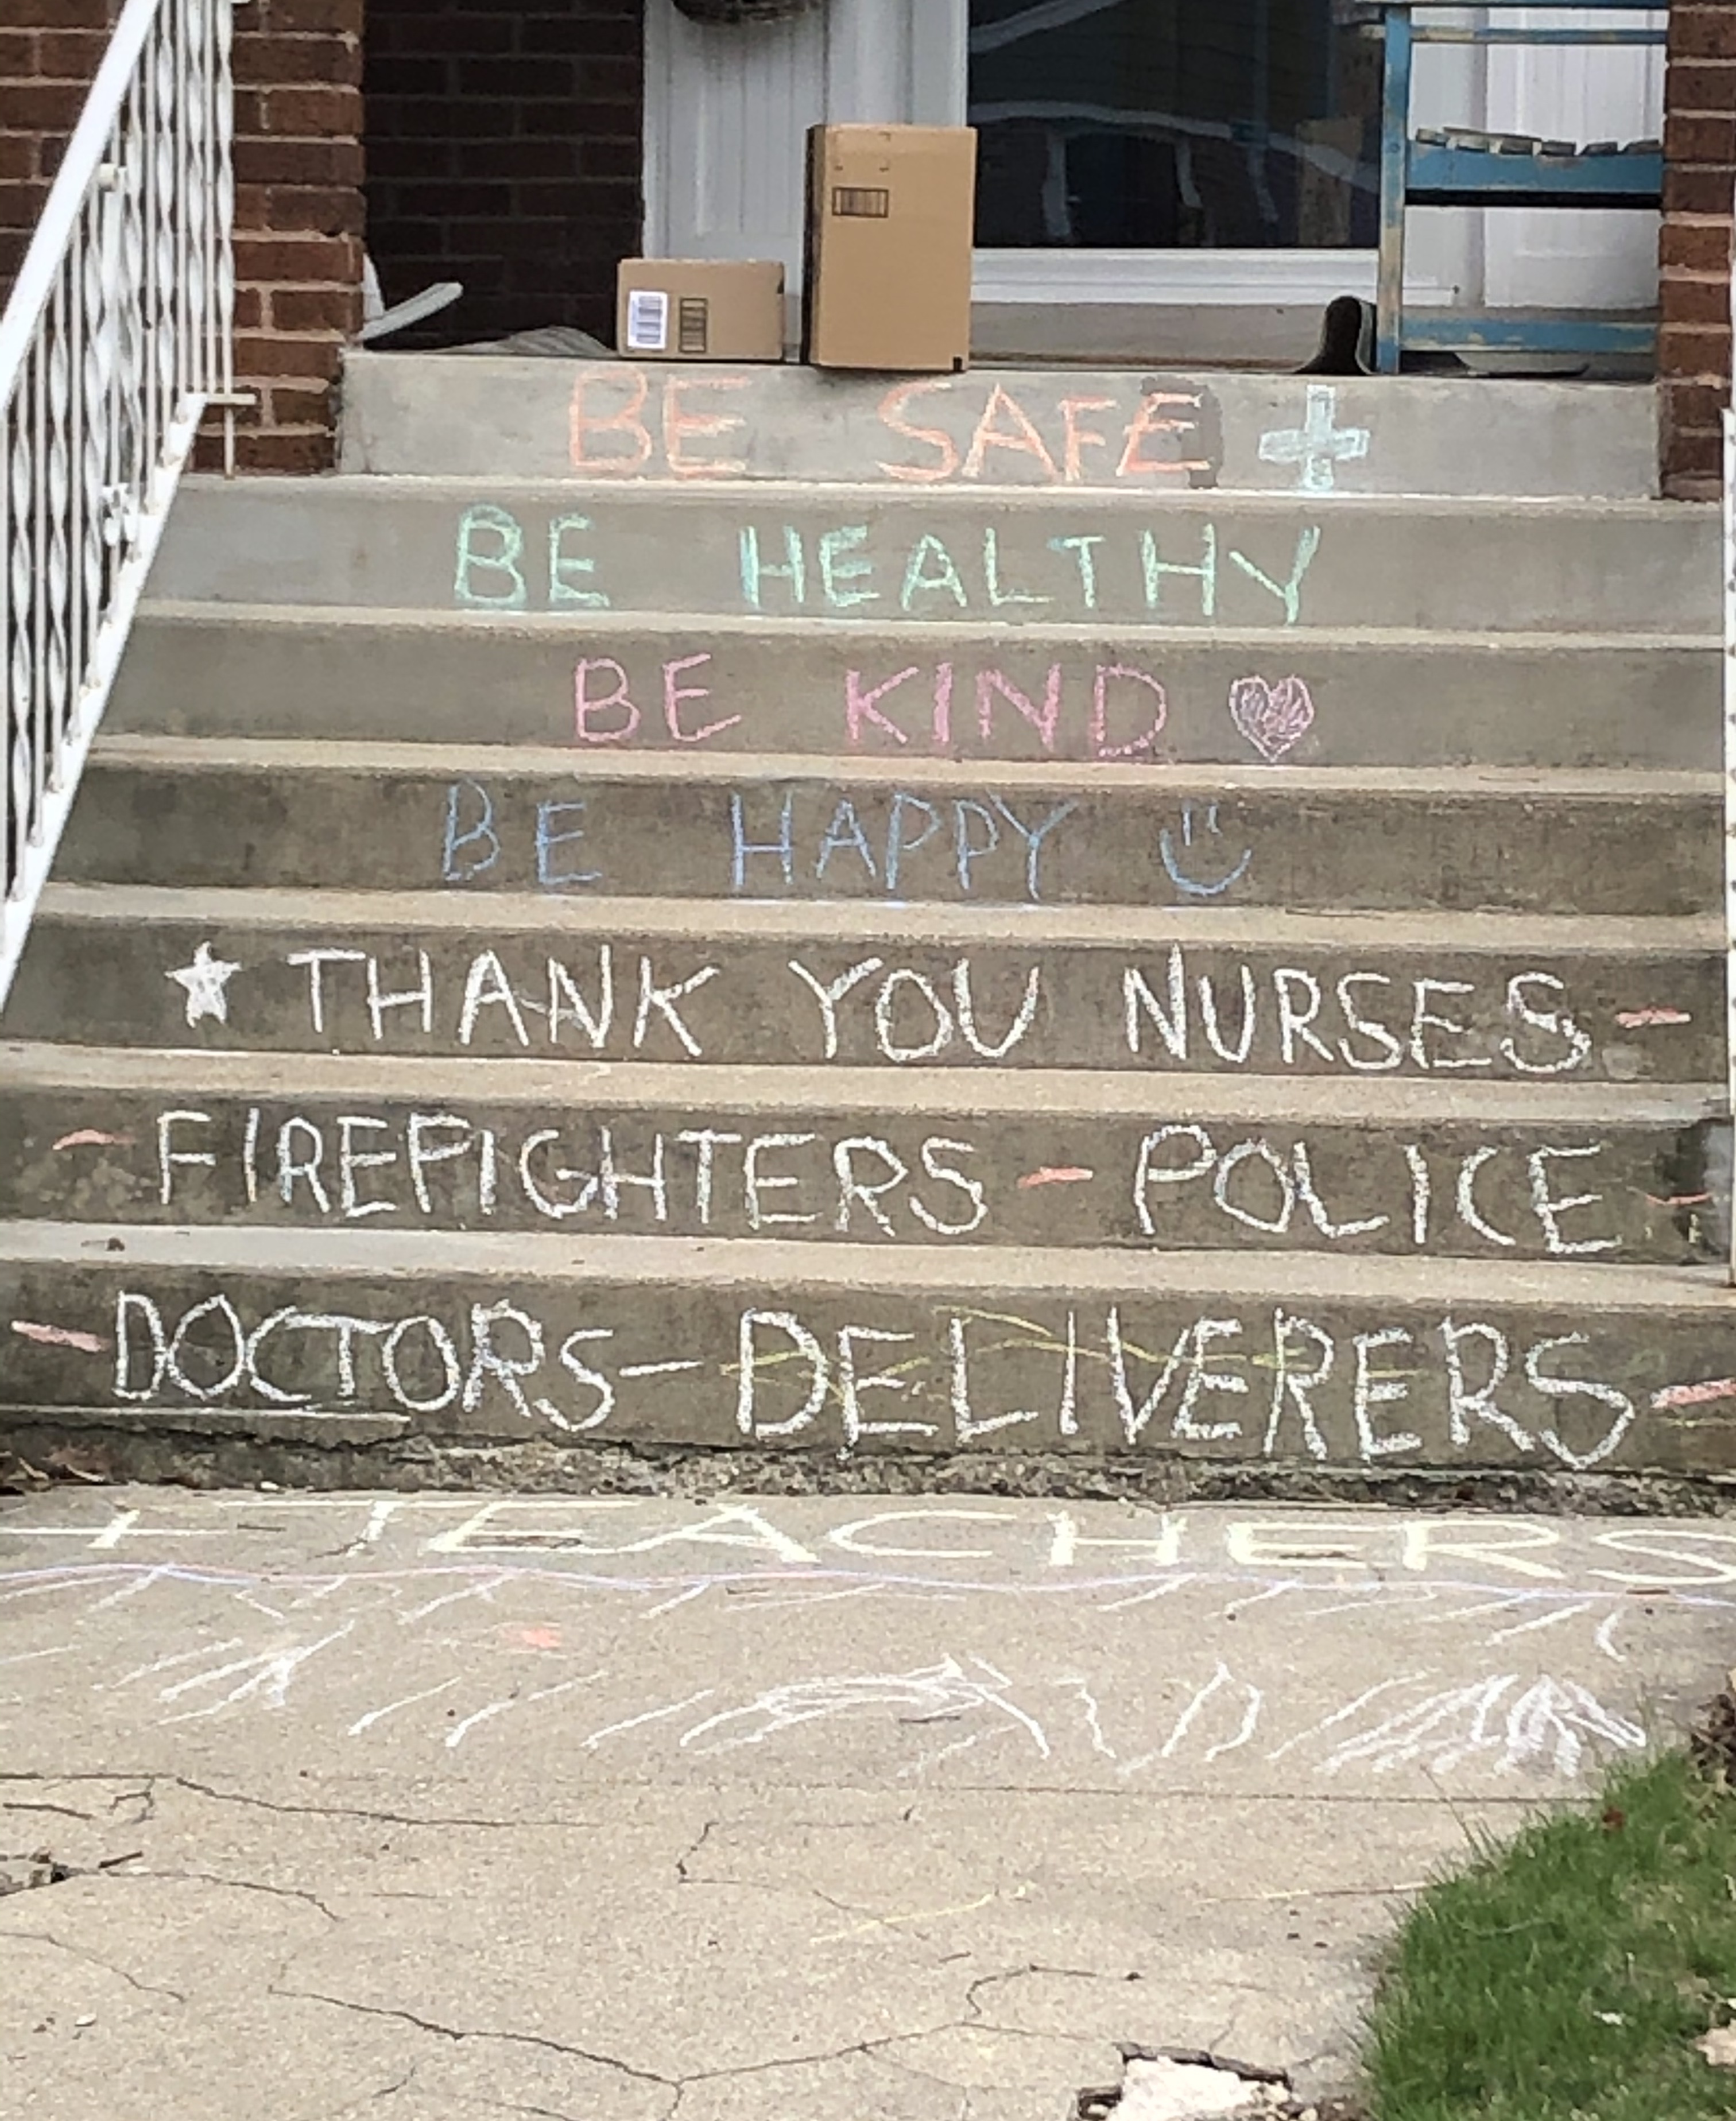 BE SAFE +
BE HEALTHY
BE KIND ♥
BE HAPPY
★ THANK YOU NURSES -
- FIREFIGHTERS - POLICE -
- DOCTORS - DELIVERERS -
+ TEACHERS